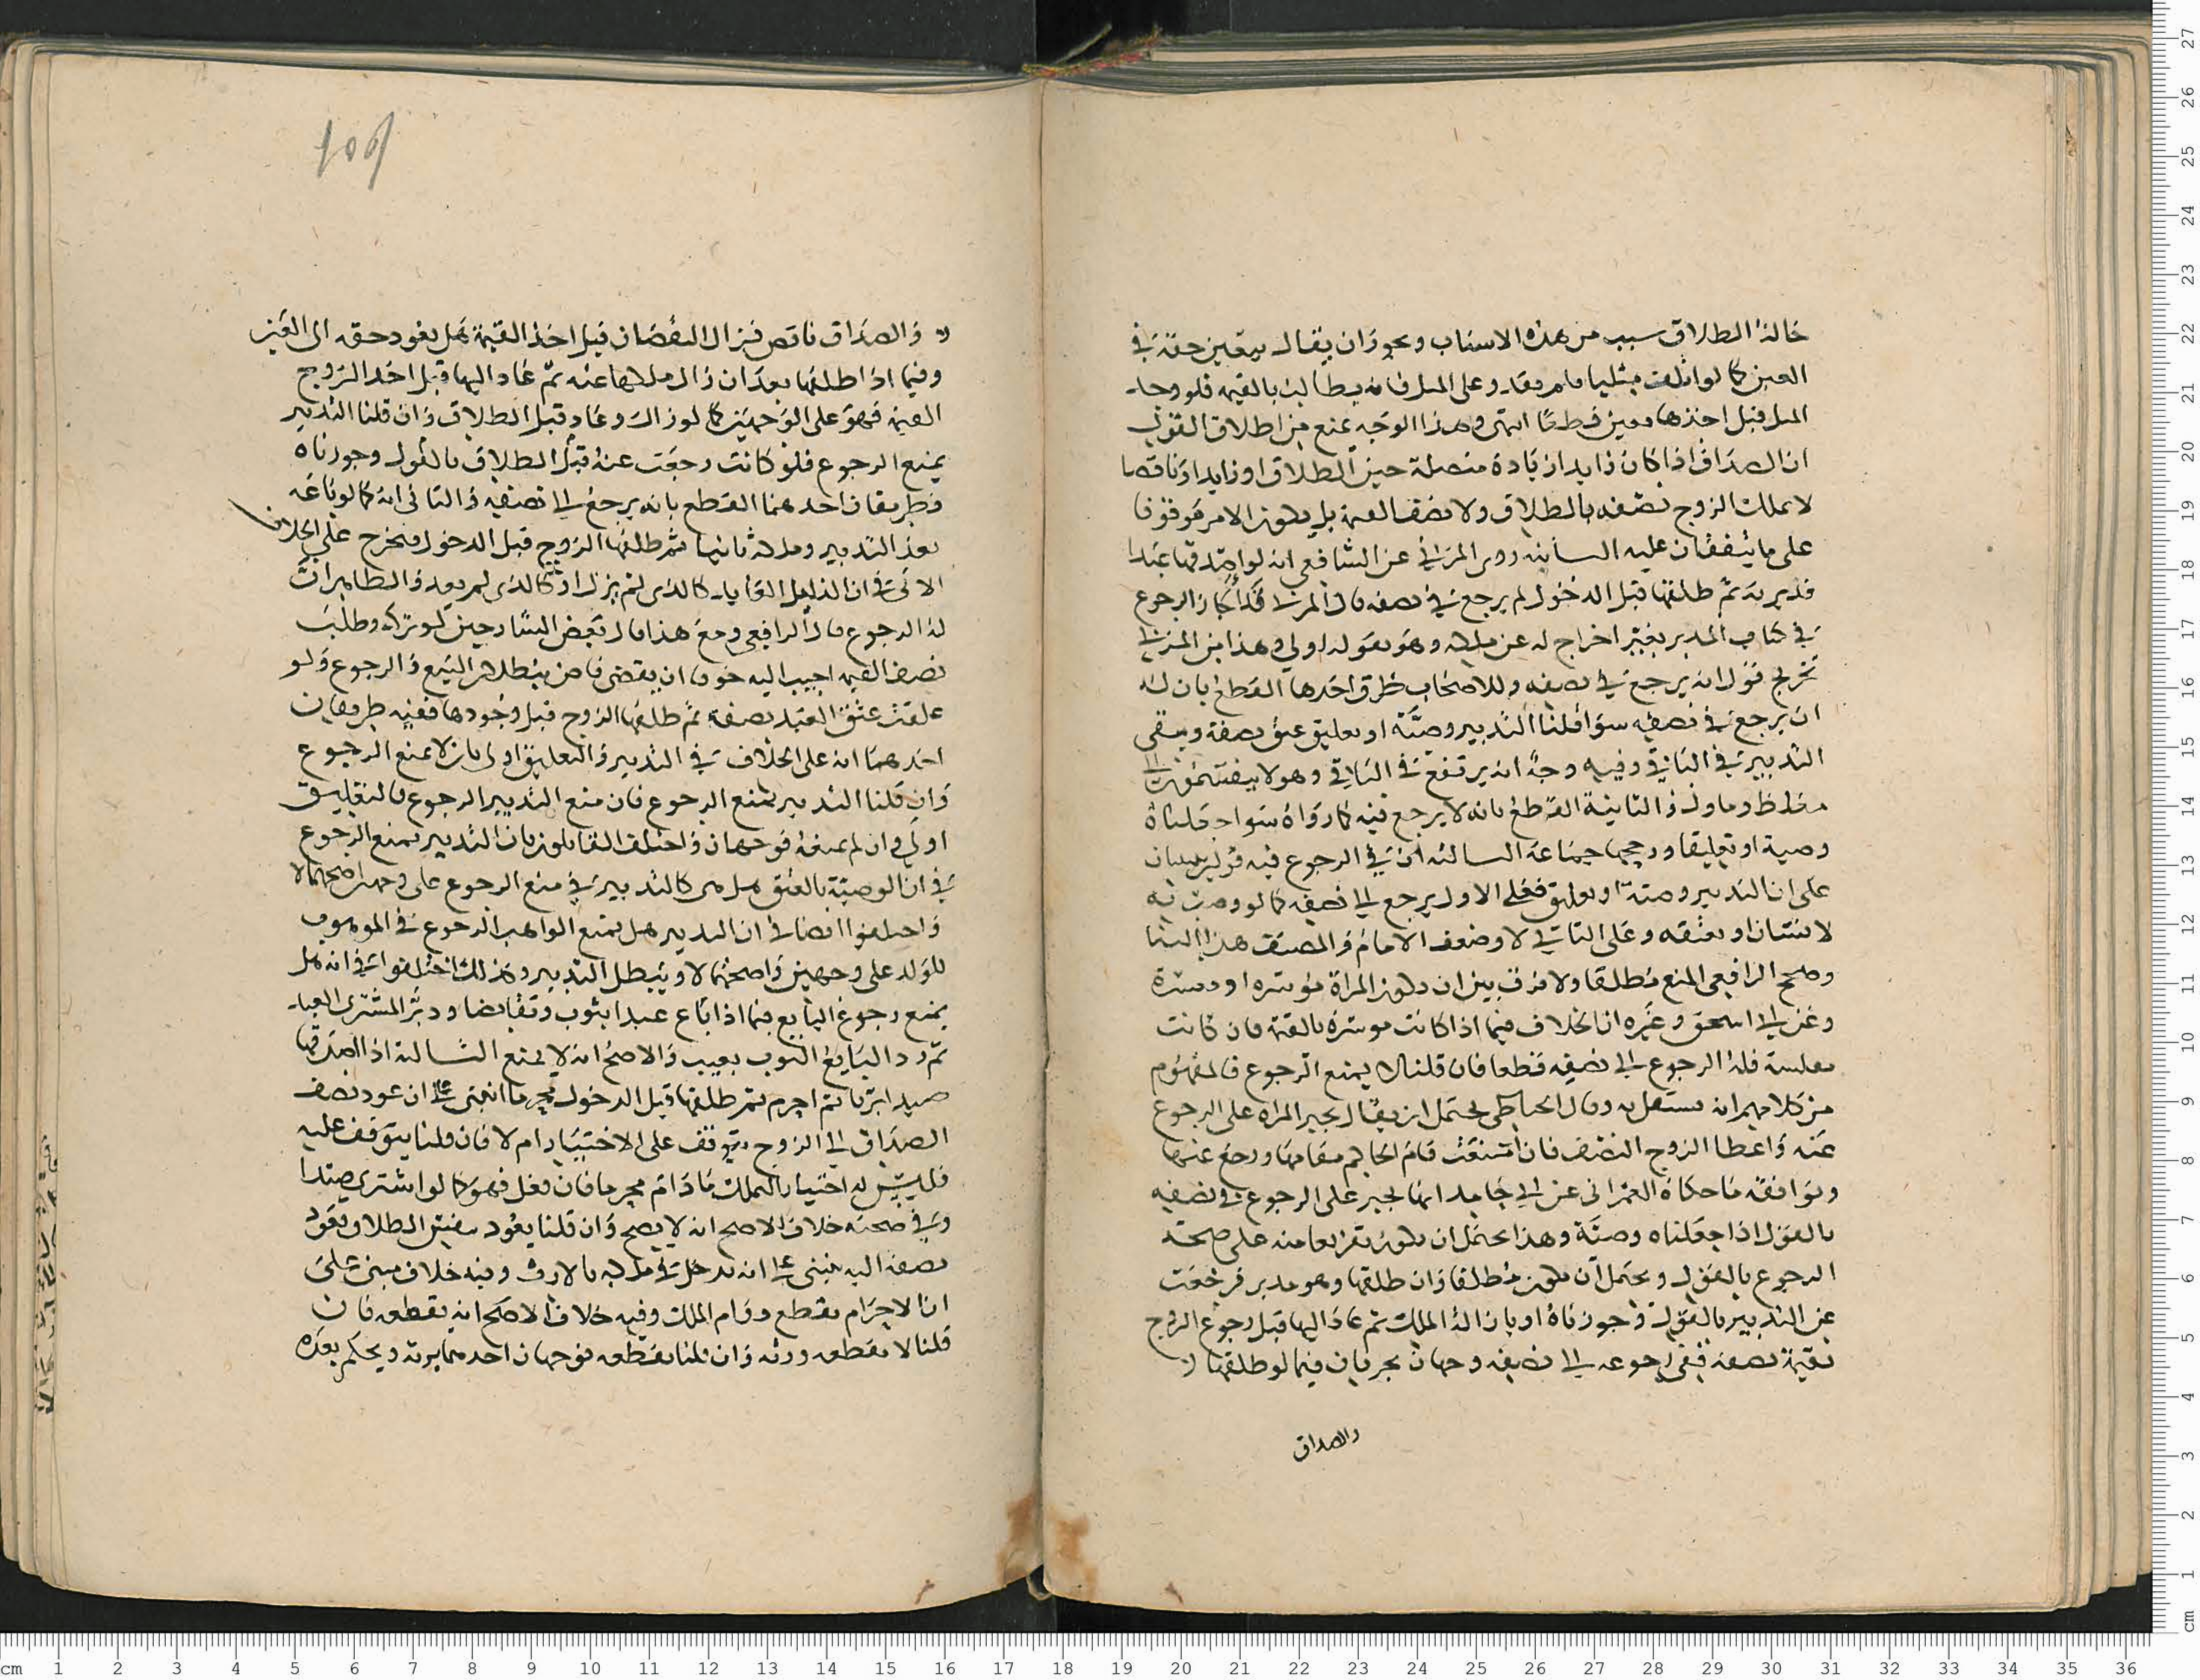 حالة الطلاق سبب من هذه الاسباب ويجوز ان يقال يتعين حقه في
العين كما لو اتلف مثليا فلم يقدر على المثل فانه يطالب بالقيمة فلو وجد
المثل قبل اخذها تعين قطعا انتهى وهذا الوجه يمنع من اطلاق القول
ان الصداق اذا كان زايدا زيادة متصلة حين الطلاق او زايدا وناقصا
لا يملك الزوج نصفه بالطلاق ولا نصف القيمة بل يكون الامر موقوفا
على ما يتفقان عليه الثانية روى المزني عن الشافعي انه لو اصدقها عبدا
فدبرته ثم طلقها قبل الدخول لم يرجع في نصفه قال المزني قد اجاز الرجوع
في كتاب المدبر بغير اخراج له عن ملكه وهو بقوله اولى وهذا من المزني
تخريج قول انه يرجع في نصفه وللاصحاب طرق احدها القطع بان له
ان يرجع في نصفه سوا قلنا التدبير وصية او تعليق عتق بصفة ويبقى
التدبير في الباقي وفيه وجه انه يرتفع في الباقي وهو لا
وماول والثانية القطع بانه لا يرجع فيه كما رواه سوا جعلناه
وصية او تعليقا ورجحها جماعة الثالثة ان في الرجوع فيه قولين مبنيان
على ان التدبير وصية او تعليق فعلى الاول يرجع الى نصفه كما لو وصت به
لانسان او بعتقه وعلى الثاني لا وضعف الامام والمصنف هذا البنا
وصحح الرافعي المنع مطلقا ولا فرق بين ان تكون المراة موسرة او معسرة
وعن ابي اسحق وغيره ان الخلاف فيما اذا كانت موسرة بالقيمة فان كانت
مفلسة فله الرجوع الى نصفه قطعا فان قلنا لا يمنع الرجوع فالمفهوم
من كلامهم انه يستقل به وقال الحناطي يحتمل ان يقال يجبر المراه على الرجوع
عنه واعطا الزوج النصف فان امتنعت قام الحاكم مقامها ورجع عنها
ويوافقه ما حكاه العمراني عن ابي حامد انها تجبر على الرجوع في نصفه
بالقول اذا جعلناه وصية وهذا يحتمل ان يكون تفريعا منه على صحة
الرجوع بالقول ويحتمل ان يكون مطلقا وان طلقها وهو مدبر فرجعت
عن التدبير بالقول وجوزناه او بازالة الملك ثم عاد اليها قبل رجوع الزوج
بقيمة نصفه ففي رجوعه الى نصفه وجهان يجريان فيما لو طلقها
والصداق
109
والصداق ناقص فزال النقصان قبل اخذ القيمة هل يعود حقه الى العين
وفيما اذا طلقها بعد ان زال ملكها عنه ثم عاد اليها قبل اخذ الزوج
القيمة فهو على الوجهين كما لو زال وعاد قبل الطلاق وان قلنا التدبير
يمنع الرجوع فلو كانت رجعت عنه قبل الطلاق بالقول وجوزناه
فطريقان احدهما القطع بانه يرجع الى نصفه والثاني انه كما لو باعه
بعد التدبير وملكه ثانيا ثم طلقها الزوج قبل الدخول فيخرج على الخلاف
الاتي في ان الزايل العايد كالذي لم يزل او كالذي لم يعد والظاهر ان
له الرجوع قال الرافعي ومع هذا قال بعض الشارحين لو تركه وطلب
نصف القيمة اجيب اليه خوفا ان يقضي قاض ببطلان البيع والرجوع ولو
علقت عتق العبد بصفة ثم طلقها الزوج قبل وجودها ففيه طريقان
احدهما انه على الخلاف في التدبير والتعليق اولى بان لا يمنع الرجوع
وان قلنا التدبير يمنع الرجوع فان منع التدبير الرجوع فالتعليق
اولى وان لم يمنعه فوجهان واختلف القايلون بان التدبير يمنع الرجوع
في ان الوصية بالعتق هل هي كالتدبير في منع الرجوع على وجهين اصحهما لا
واختلفوا ايضا في ان التدبير هل يمنع الواهب الرجوع في الموهوب
للولد على وجهين واصحهما لا ويبطل التدبير وكذلك اختلفوا في انه هل
يمنع رجوع البايع فيما اذا باع عبدا بثوب وتقابضا ودبر المشتري العبد
ثم رد البايع الثوب بعيب والاصح انه لا يمنع الثالثة اذا اصدقها
صيدا بريا ثم احرم ثم طلقها قبل الدخول محرما انبنى على ان عود نصف
الصداق الى الزوج يتوقف على الاختيار ام لا فان قلنا يتوقف عليه
فليس له اختيار التملك ما دام محرما فان فعل فهو كما لو اشترى صيدا
وفي صحته خلاف الاصح انه لا يصح وان قلنا يعود بنفس الطلاق فعود
نصفه اليه ينبني على انه يدخل في ملكه بالارث وفيه خلاف مبني على
ان الاحرام يقطع دوام الملك وفيه خلاف الاصح انه يقطعه فان
قلنا لا يقطعه ورثه وان قلنا يقطعه فوجهان احدهما يرثه ويحكم بعده